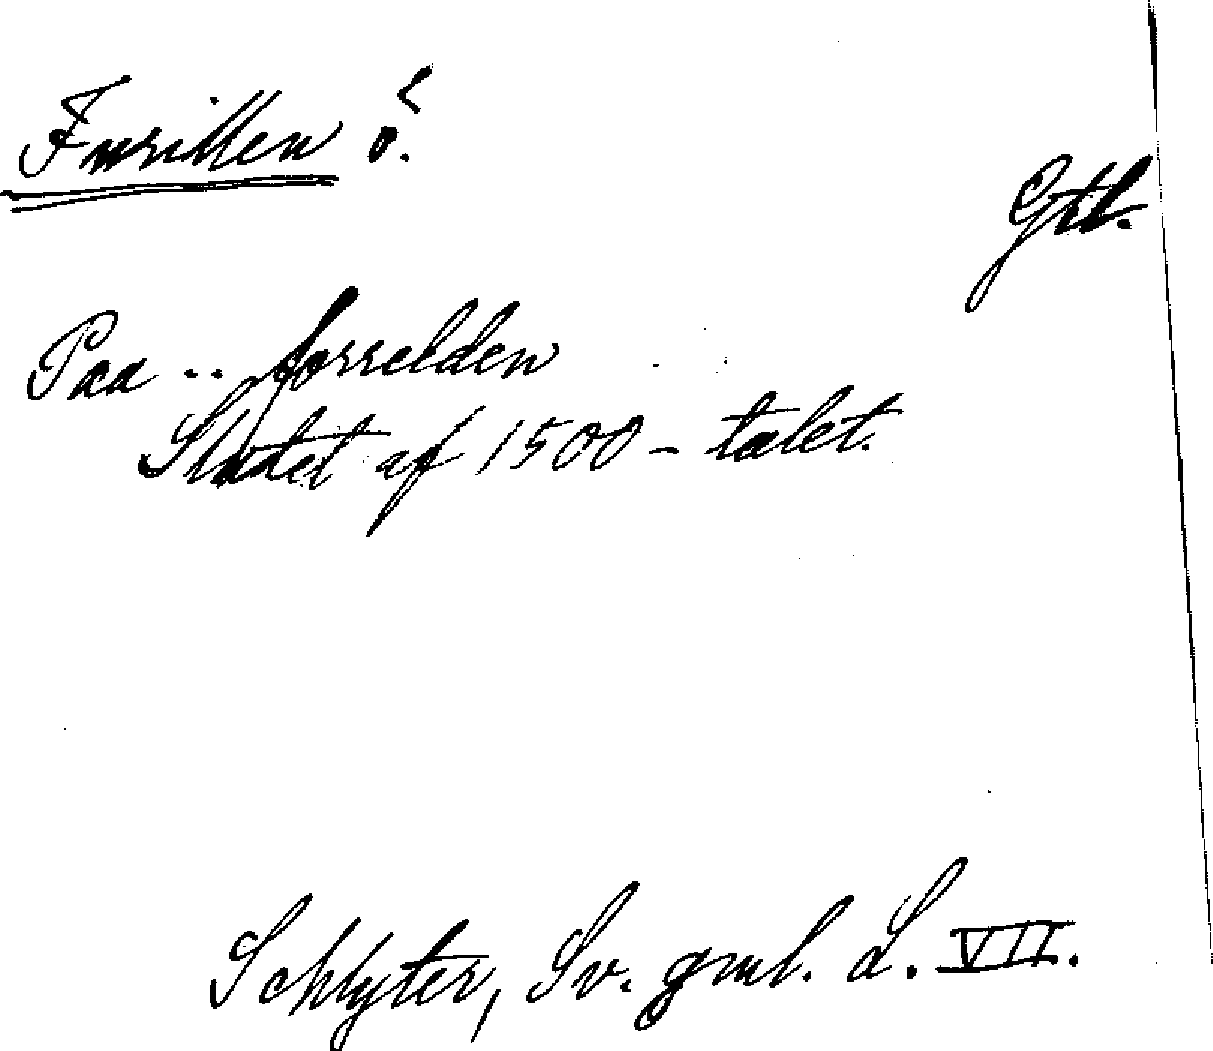 Furillen ö.
Gtl.
Paa .. forrelden
Slutet af 1500-talet.
Schlyter, Sv. gml. L. VII.